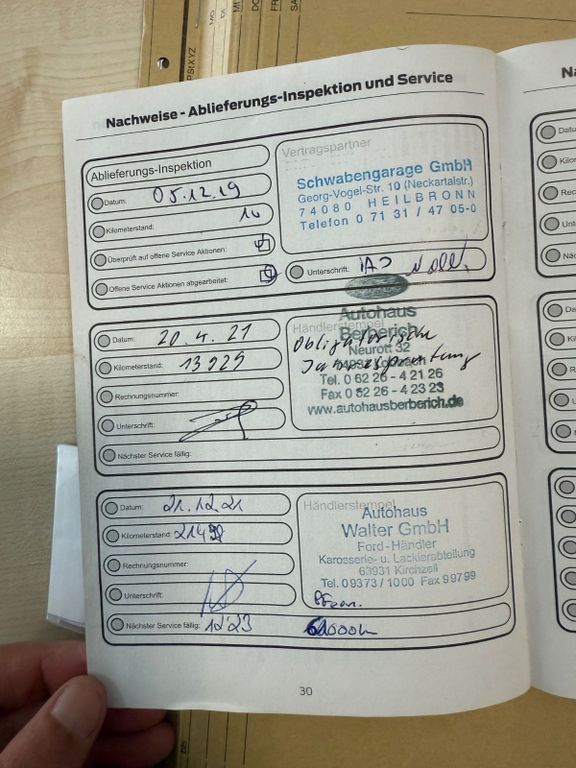 Nachweise - Ablieferungs-Inspektion und Service
Ablieferungs-Inspektion
Datum: 05.12.19
Kilometerstand: 10
Überprüft auf offene Service Aktionen:
Offene Service Aktionen abgearbeitet:
Vertragspartner
Schwabengarage GmbH
Georg-Vogel-Str. 10 (Neckartalstr.)
74080 HEILBRONN
Telefon 0 71 31 / 47 05-0
Unterschrift:
Datum: 20.4.21
Kilometerstand: 13929
Rechnungsnummer:
Unterschrift:
Nächster Service fällig:
Händlerstempel
Autohaus
Berberich
Neurott 32
Tel. 0 62 26 - 4 21 26
Fax 0 62 26 - 4 23 23
www.autohausberberich.de
Obligatorische
Jahresprüfung
Datum: 21.12.21
Kilometerstand:
Rechnungsnummer:
Unterschrift:
Nächster Service fällig: 12'23
Händlerstempel
Autohaus
Walter GmbH
Ford-Händler
Karosserie- u. Lackierabteilung
63931 Kirchzell
Tel. 09373 / 1000 Fax 99799
30